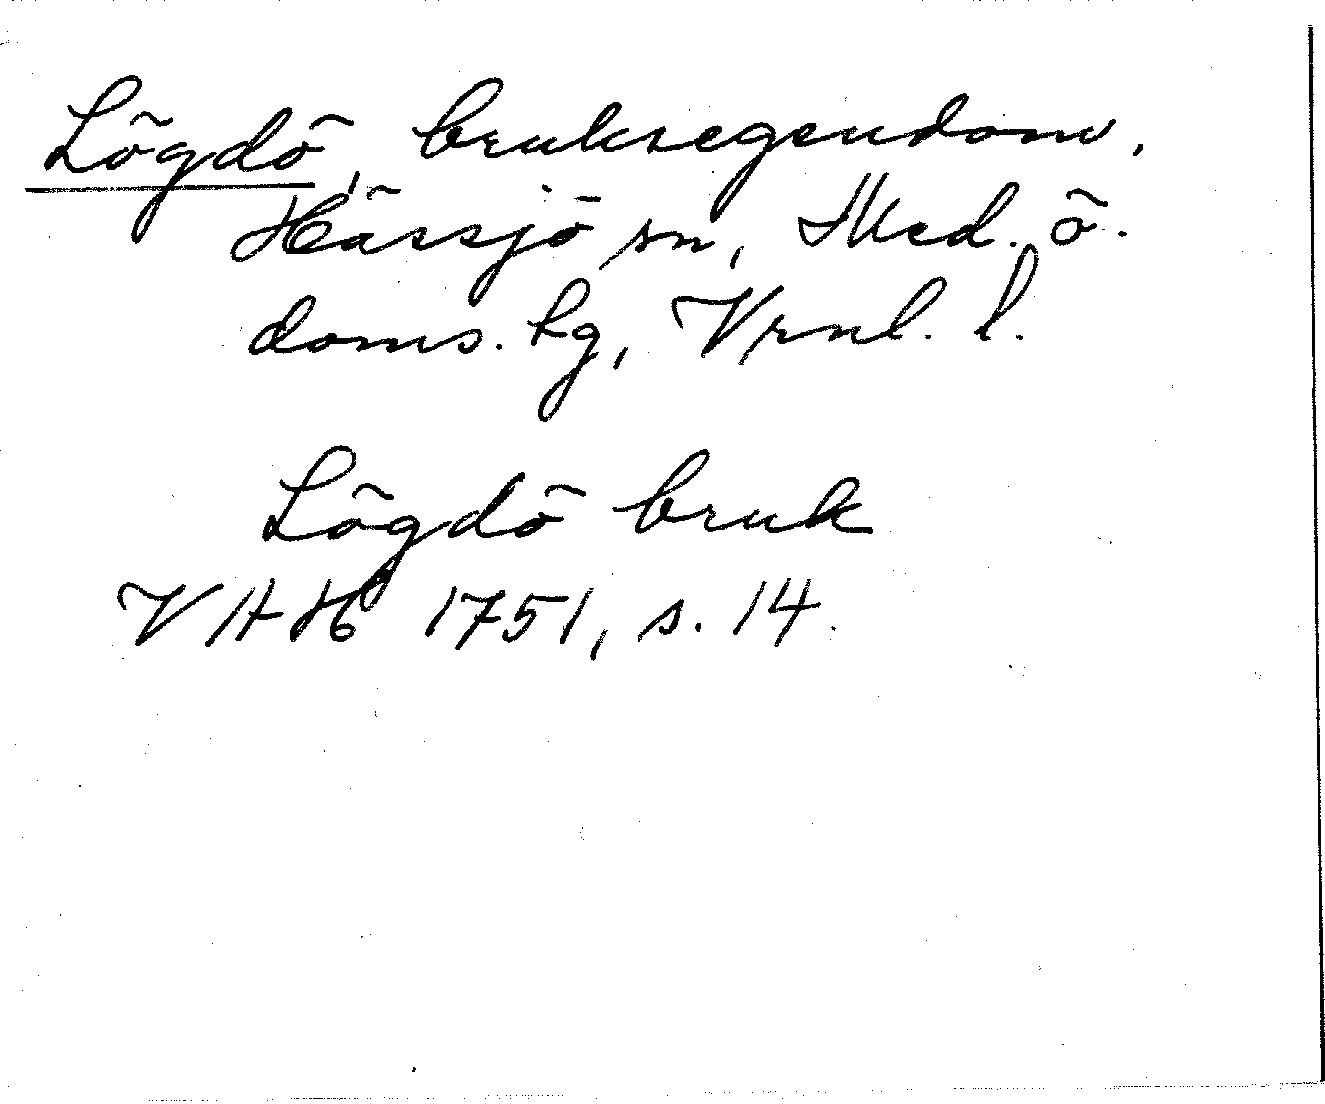 Lögdö, bruksegendom,
Hässjö sn, Med. ö.
doms. lg, Vrnl. l.
Lögdö bruk
VAH 1751, s. 14.